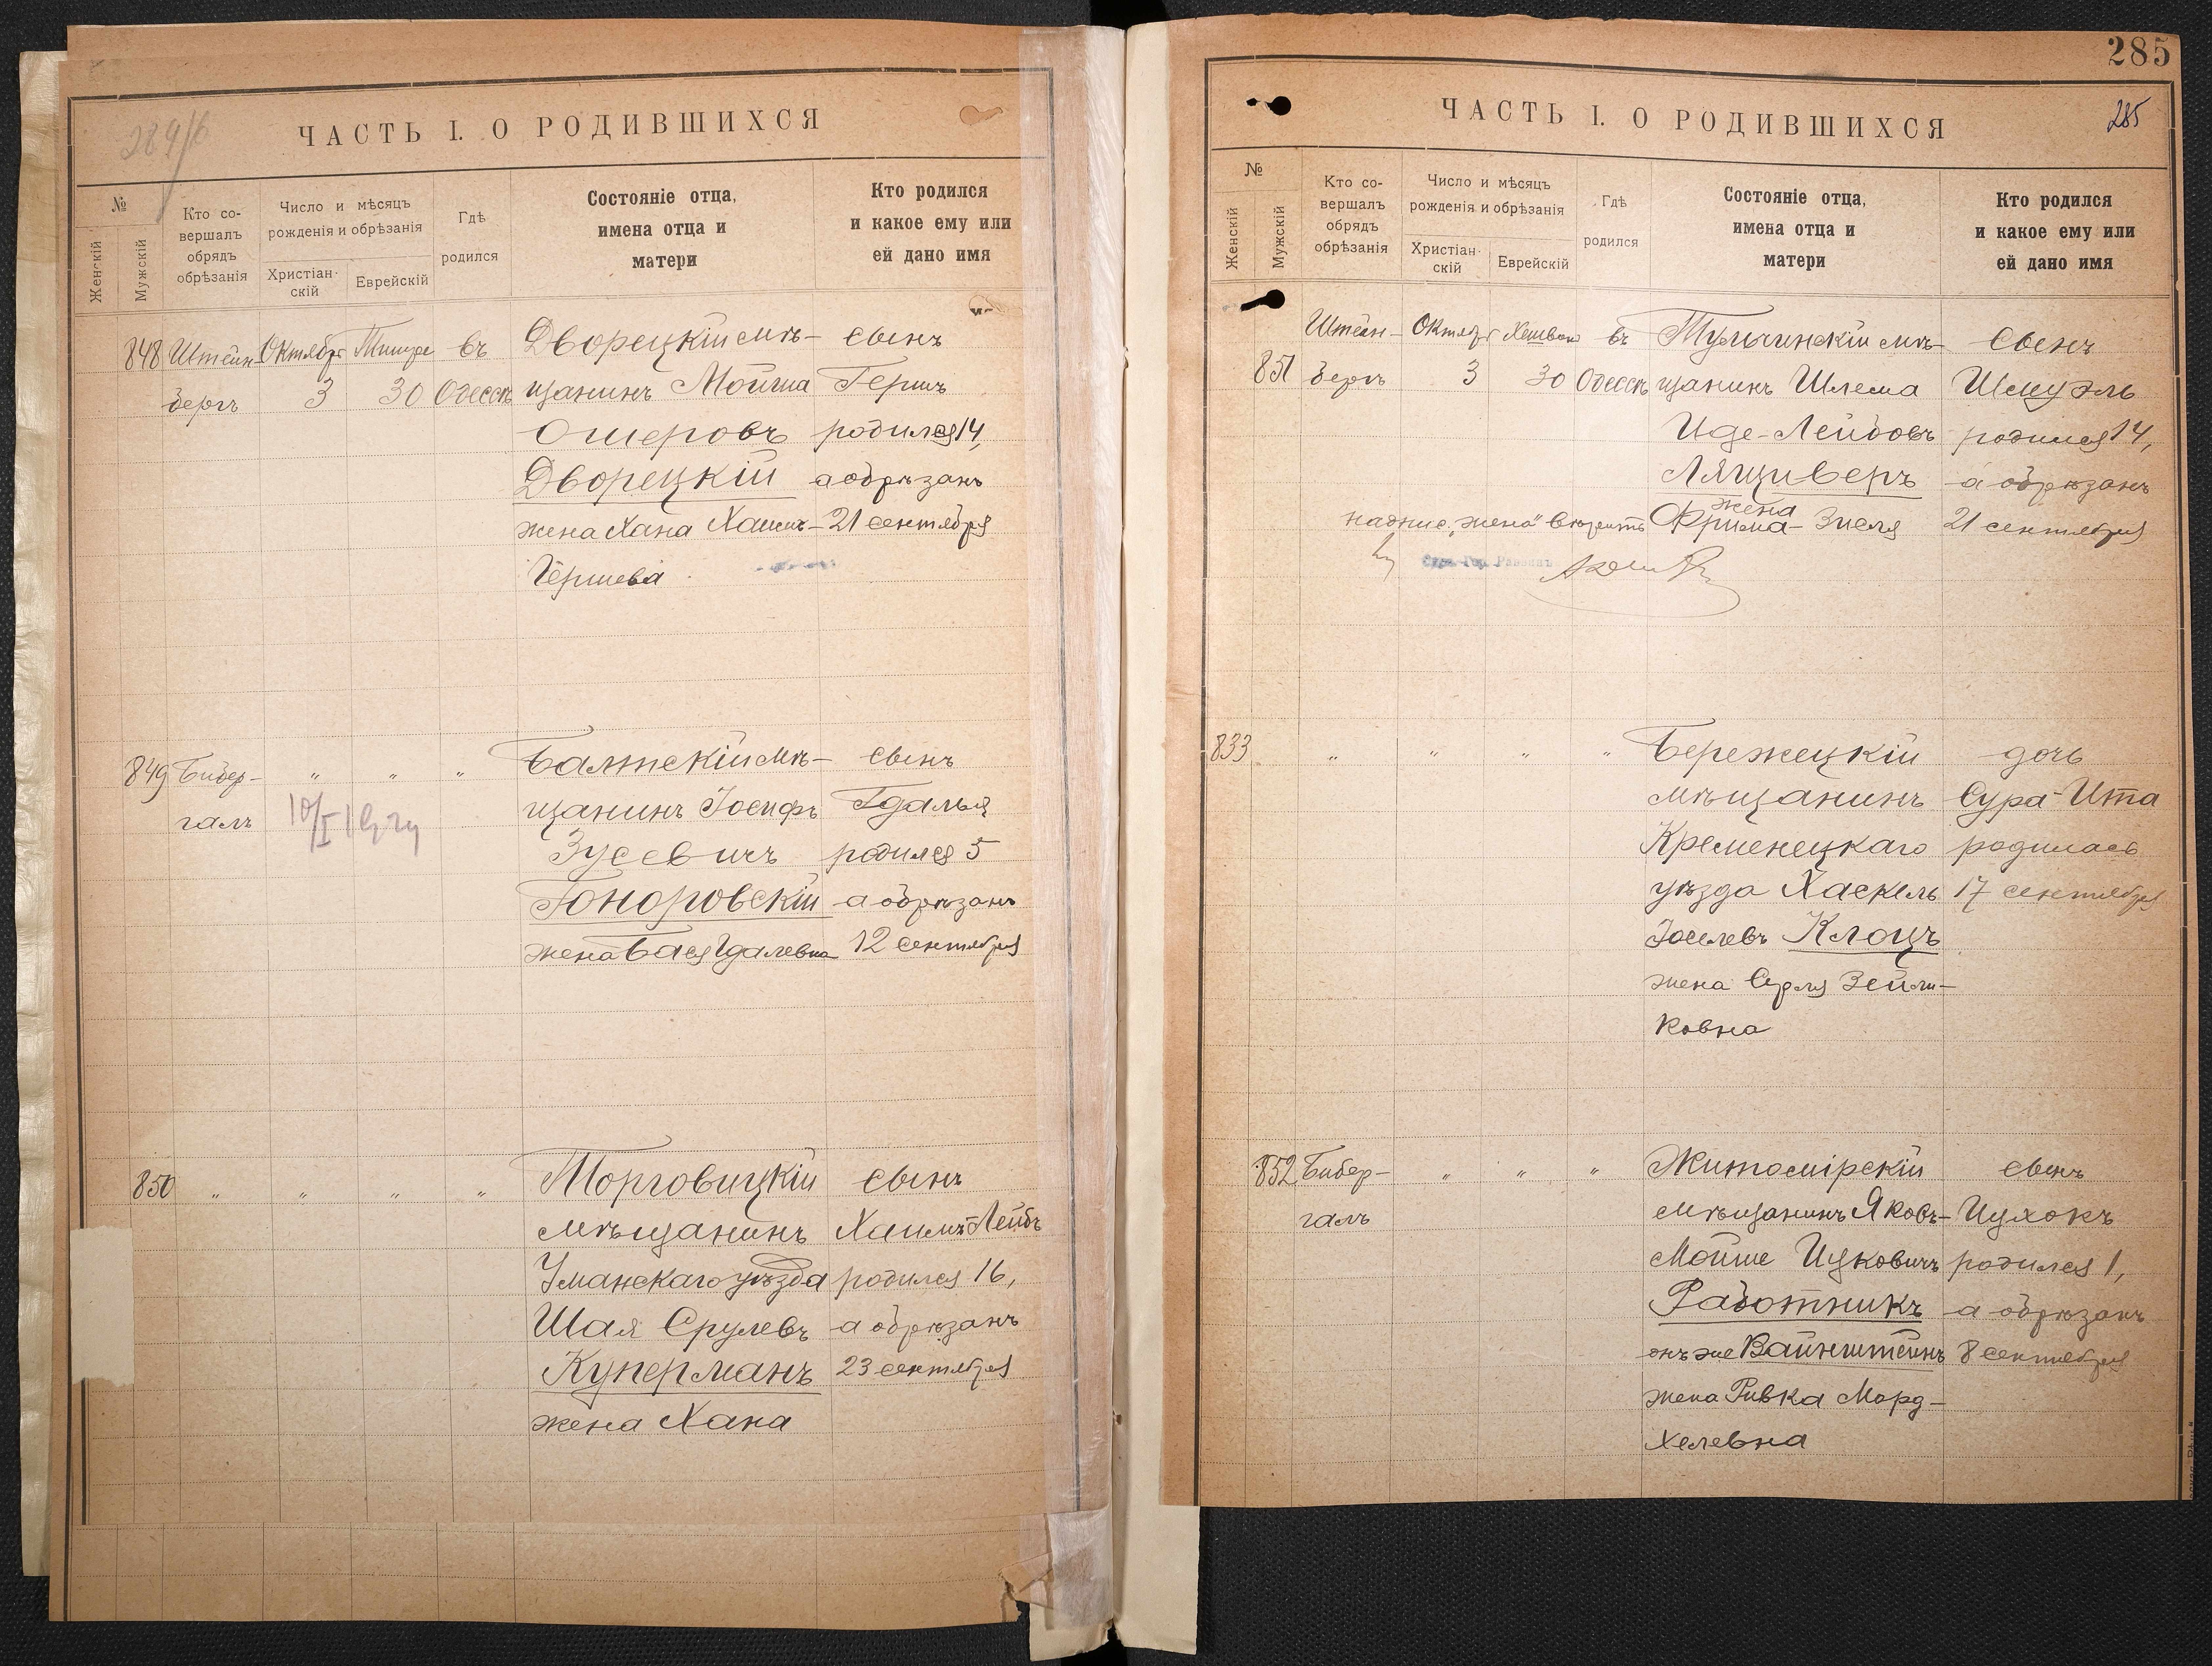 289/6
ЧАСТЬ I. О РОДИВШИХСЯ
№
Женскій
Мужскій
Кто со-
вершалъ
обрядъ
обрѣзанія
Число и мѣсяцъ
рожденія и обрѣзанія
Христіан-
скій
Еврейскій
Гдѣ
родился
Состояніе отца,
имена отца и
матери
Кто родился
и какое ему или
ей дано имя
848 Штейн- Октября Тишре въ Дворецкій мѣ- сынъ
бергъ 3 30 Одессѣ щанинъ Мойша Гершъ
Ошеровъ родился 14,
Дворецкій а обрѣзанъ
жена Хана Хаимъ- 21 сентября
Гершева
849 Бибер- " " " Балтскій мѣ- сынъ
галъ щанинъ Іосифъ Гдалья
Зусевичъ родился 5
Гоноровскій а обрѣзанъ
жена Бася Гдалевна 12 сентября
850 " " " " Торговицкій сынъ
мѣщанинъ Хаимъ-Лейбъ
Уманскаго уѣзда родился 16,
Шая Срулевъ а обрѣзанъ
Куперманъ 23 сентября
жена Хана
285
285
ЧАСТЬ I. О РОДИВШИХСЯ
№
Женскій
Мужскій
Кто со-
вершалъ
обрядъ
обрѣзанія
Число и мѣсяцъ
рожденія и обрѣзанія
Христіан-
скій
Еврейскій
Гдѣ
родился
Состояніе отца,
имена отца и
матери
Кто родился
и какое ему или
ей дано имя
Штейн- Октября Хешвона въ Тульчинскій мѣ- сынъ
851 бергъ 3 30 Одессѣ щанинъ Шлема Шмуэль
Иде-Лейбовъ родился 14,
Ляциверъ а обрѣзанъ
жена
надпис. „жена" вѣрить Фрима-Зисля 21 сентября
833 " " " " Бережецкій дочь
мѣщанинъ Сура-Ита
Кременецкаго родилась
уѣзда Хаскель 17 сентября
Іоселевъ Клоцъ
жена Сурля Зейли-
ковна
852 Бибер- " " " Житомірскій сынъ
галъ мѣщанинъ Яковъ- Ицхокъ
Мойше Ицковичъ родился 1,
Работникъ а обрѣзанъ
онъ же Вайнштейнъ 8 сентября
жена Ривка Морд-
хелевна